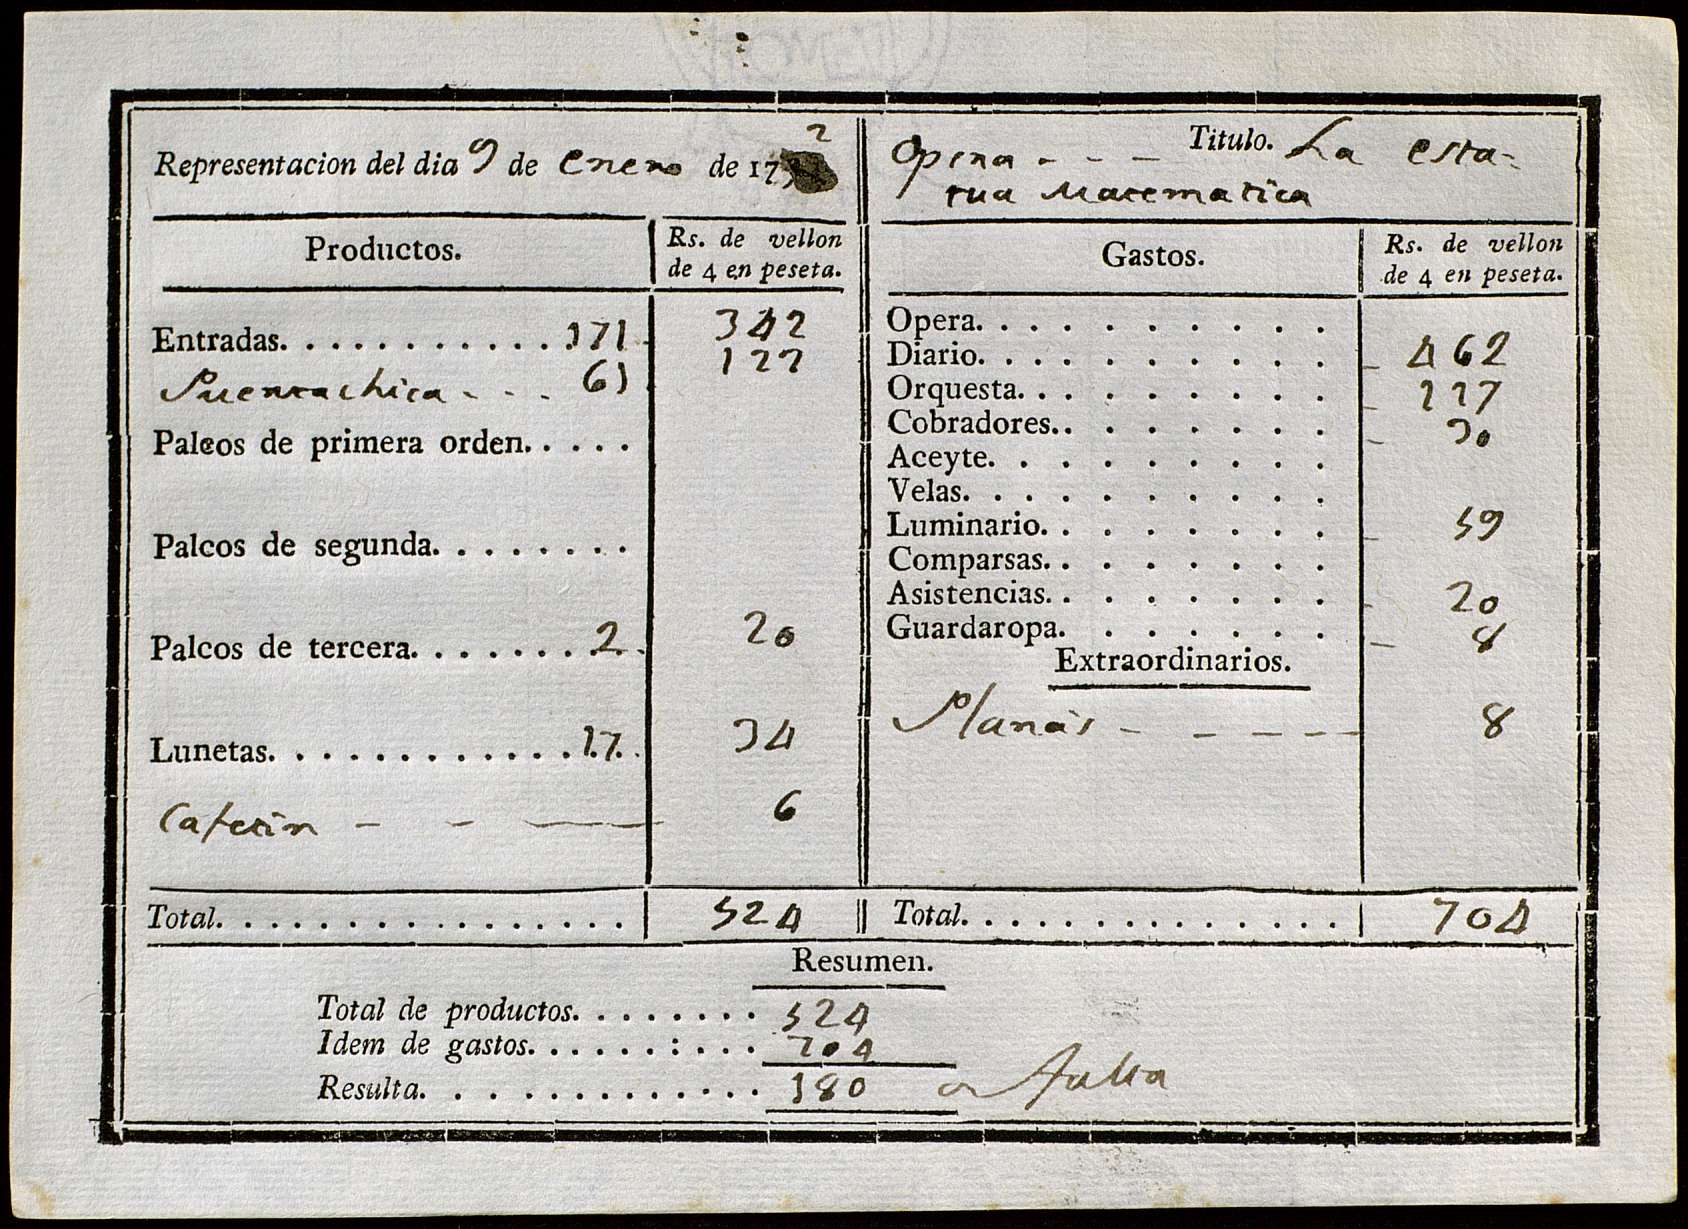 Representacion del dia 9 de enero de 179 2
Productos. Rs. de vellon de 4 en peseta.
Entradas. . . . . . . . . . . . 171 342
Puertachica - - - 61 122
Palcos de primera orden. . . . .
Palcos de segunda. . . . . . . .
Palcos de tercera. . . . . . . . 2 20
Lunetas. . . . . . . . . . . . . 17 34
Cafetin - - - 6
Total. . . . . . . . . . . . . . . . 524
Opera - - - Titulo. La esta-
tua Matematica
Gastos. Rs. de vellon de 4 en peseta.
Opera. . . . . . . . . . .
Diario. . . . . . . . . . . 462
Orquesta. . . . . . . . . 117
Cobradores. . . . . . . . 30
Aceyte. . . . . . . . . .
Velas. . . . . . . . . . .
Luminario. . . . . . . . . 59
Comparsas. . . . . . . .
Asistencias. . . . . . . . 20
Guardaropa. . . . . . . 8
Extraordinarios.
Planas - - - - - 8
Total. . . . . . . . . . . . . . 704
Resumen.
Total de productos. . . . . . . . 524
Idem de gastos. . . . . . : . . . 704
Resulta. . . . . . . . . . . . . 180 Falta